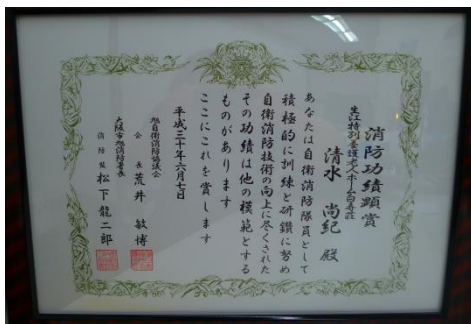 消防功績顕賞
生江特別養護老人ホーム向春荘
清水 尚紀 殿
あなたは自衛消防隊員として
積極的に訓練と研鑽に努め
自衛消防技術の向上に尽くされた
その功績は他の模範とする
ものがあります
ここにこれを賞します
平成三十年六月七日
旭自衛消防協議会
会長 荒井 敏博
大阪市旭消防署長
消防監 松下 龍二郎